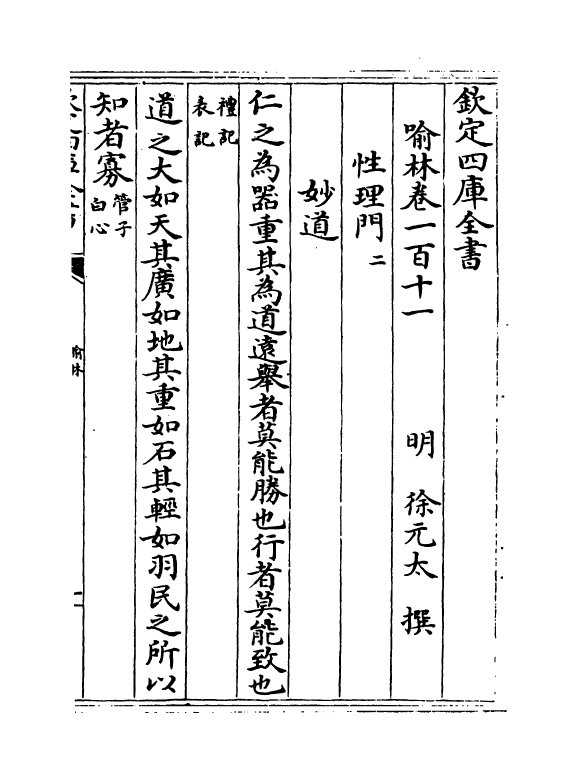 欽定四庫全書
喻林卷一百十一　明　徐元太　撰
性理門二
妙道
仁之為器重其為道遠舉者莫能勝也行者莫能致也
禮記
表記
道之大如天其廣如地其重如石其輕如羽民之所以
知者寡管子
白心
喻林